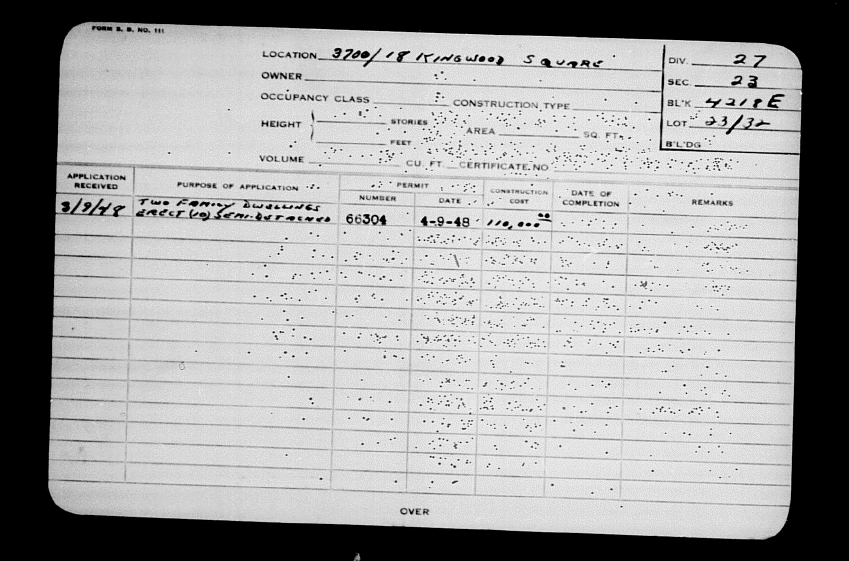 FORM S. B. NO. 111
LOCATION 3700/18 KINGWOOD SQUARE
DIV. 27
OWNER
SEC. 23
OCCUPANCY CLASS CONSTRUCTION TYPE
BL'K 4218E
HEIGHT STORIES AREA SQ. FT.
LOT 23/32
FEET
B'L'DG
VOLUME CU. FT. CERTIFICATE NO
APPLICATION RECEIVED PURPOSE OF APPLICATION PERMIT NUMBER DATE CONSTRUCTION COST DATE OF COMPLETION REMARKS
TWO FAMILY DWELLINGS
3/9/48 ERECT (10) SEMI-DETACHED 66304 4-9-48 110,000 00
OVER